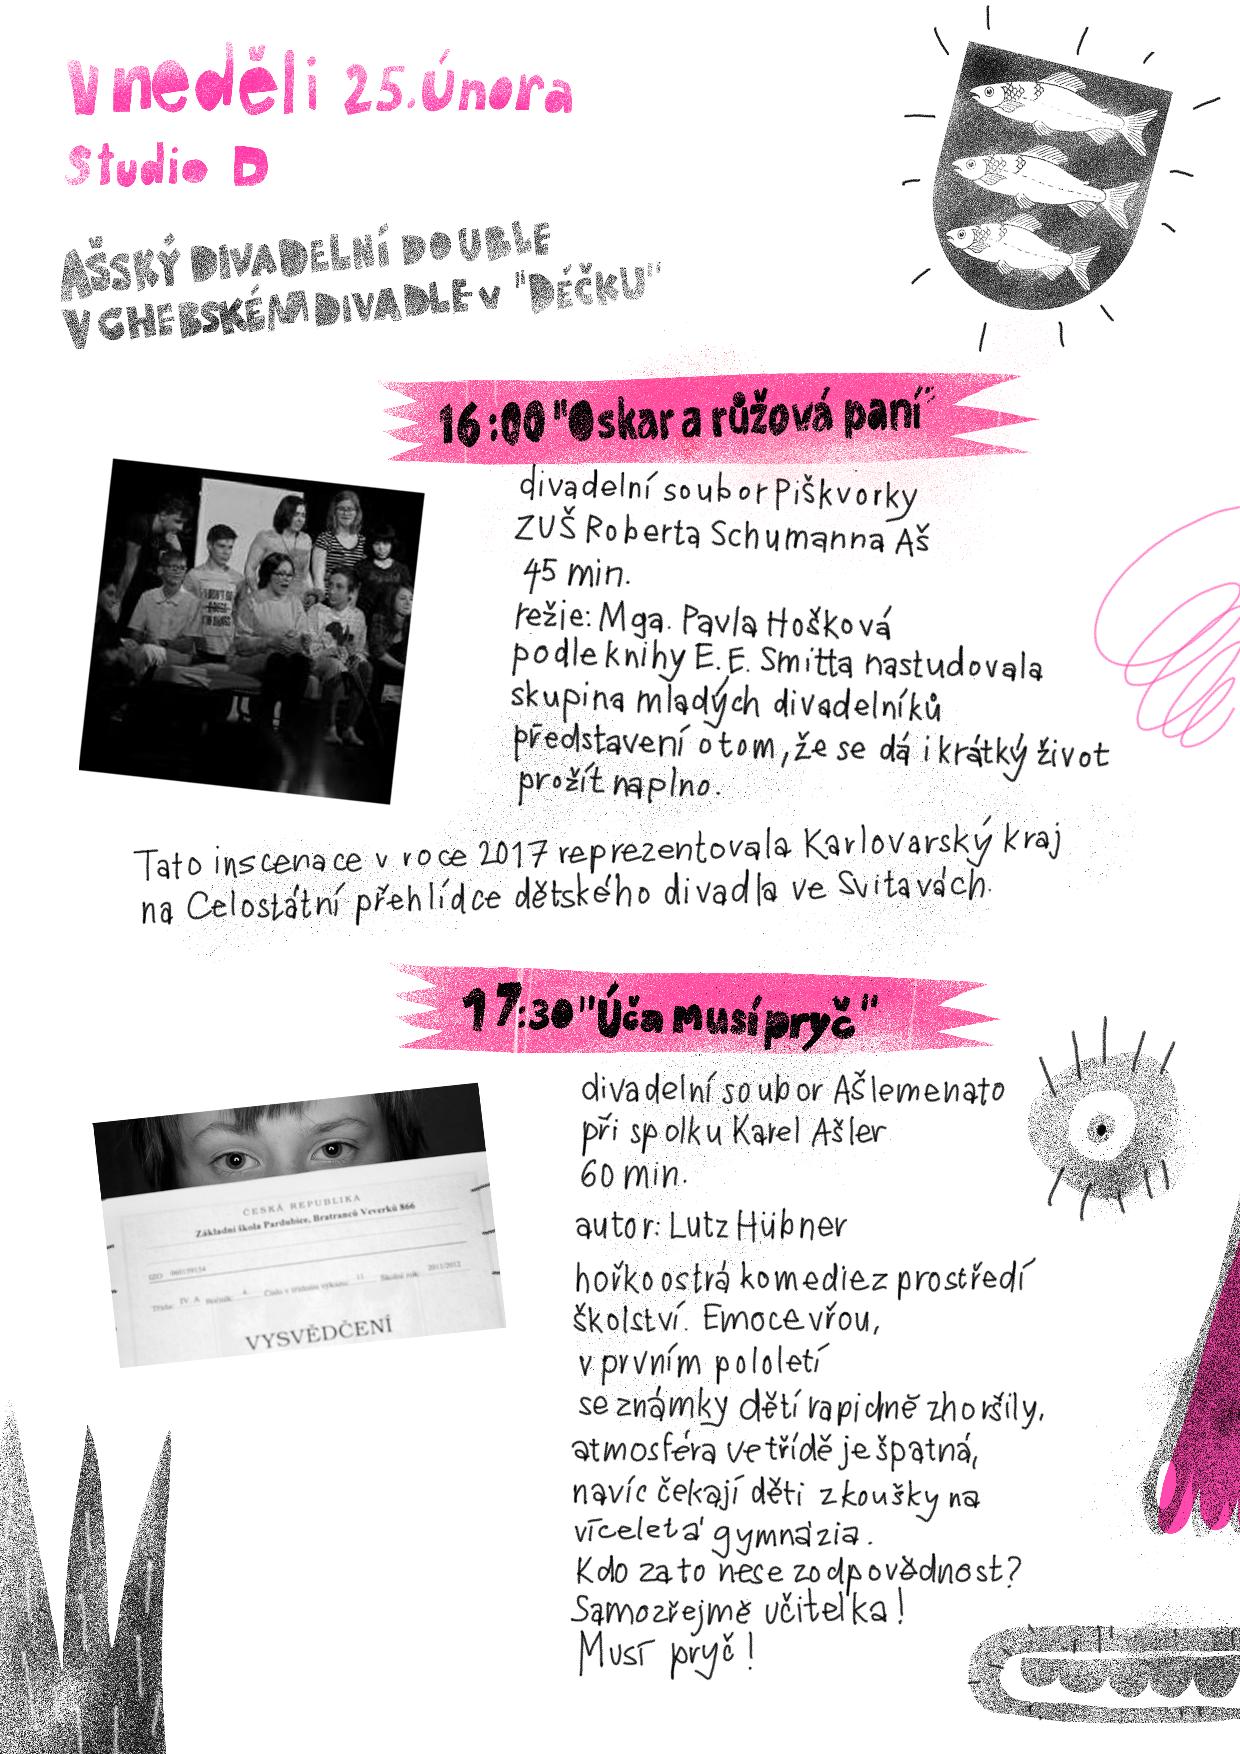 v neděli 25. Února
Studio D
AŠSKÝ DIVADELNÍ DOUBLE
V CHEBSKÉM DIVADLE v "DÉČKU"
16:00 "Oskar a růžová paní"
divadelní soubor Piškvorky
ZUŠ Roberta Schumanna Aš
45 min.
režie: Mga. Pavla Hošková
podle knihy E. E. Smitta nastudovala
skupina mladých divadelníků
představení o tom, že se dá i krátký život
prožít naplno.
Tato inscenace v roce 2017 reprezentovala Karlovarský kraj
na Celostátní přehlídce dětského divadla ve Svitavách.
17:30 "Úča musí pryč"
divadelní soubor Ašlemenato
při spolku Karel Ašler
60 min.
autor: Lutz Hübner
hořko ostrá komedie z prostředí
školství. Emoce vřou,
v prvním pololetí
se známky dětí rapidně zhoršily,
atmosféra ve třídě je špatná,
navíc čekají děti zkoušky na
víceletá gymnázia.
Kdo za to nese zodpovědnost?
Samozřejmě učitelka!
Musí pryč!
ČESKÁ REPUBLIKA
Základní škola Pardubice, Bratranců Veverků 866
IZO
Třída: IV. A Ročník: 4. Číslo v třídním výkazu: 11 Školní rok: 2011/2012
VYSVĚDČENÍ